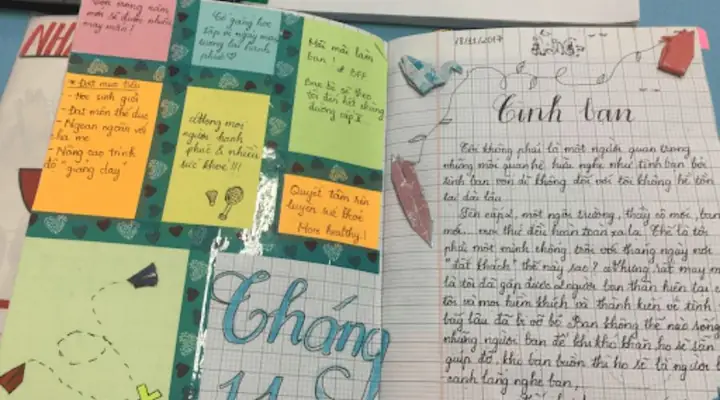 NHẬ
năm
mới sẽ đón nhiều
may mắn!
Cố gắng học
tập vì ngày mai
tương lai hạnh
phúc ♡
Mãi mãi là
bạn! # BFF
Bạn bè sẽ theo
tôi đến hết chặng
đường cấp 2
* Đạt mục tiêu
- Học sinh giỏi
- Đạt môn thể dục
- Ngoan ngoãn với
cha mẹ
- Nâng cao trình
độ "giảng dạy
Mong mọi
người hạnh
phúc & nhiều
sức khoẻ!!!
Quyết tâm rèn
luyện sức khoẻ
More healthy!
Tháng
11
18/11/2017
Tình bạn
Tôi không phải là một người quan trọng
những mối quan hệ hữu nghị như tình bạn bởi
tình bạn vốn dĩ không đối với tôi không hề tồn
tại dài lâu
Lên cấp 2, một ngôi trường, thầy cô mới, bạn
mới... mọi thứ đều hoàn toàn xa lạ. Thế là tôi
phải một mình chống trọi với tháng ngày nơi
"đất khách" thế này sao? Nhưng rất may mắ
là tôi đã gặp được 2 người bạn thân hiện tại c
tôi và mọi hiềm khích và thành kiến về tình
bấy lâu đã bị vỡ bỏ. Bạn không thể nào sống
những người bạn để khi khó khăn họ sẽ sẵn
giúp đỡ, khi bạn buồn thì họ sẽ là người b
cạnh lắng nghe bạn,